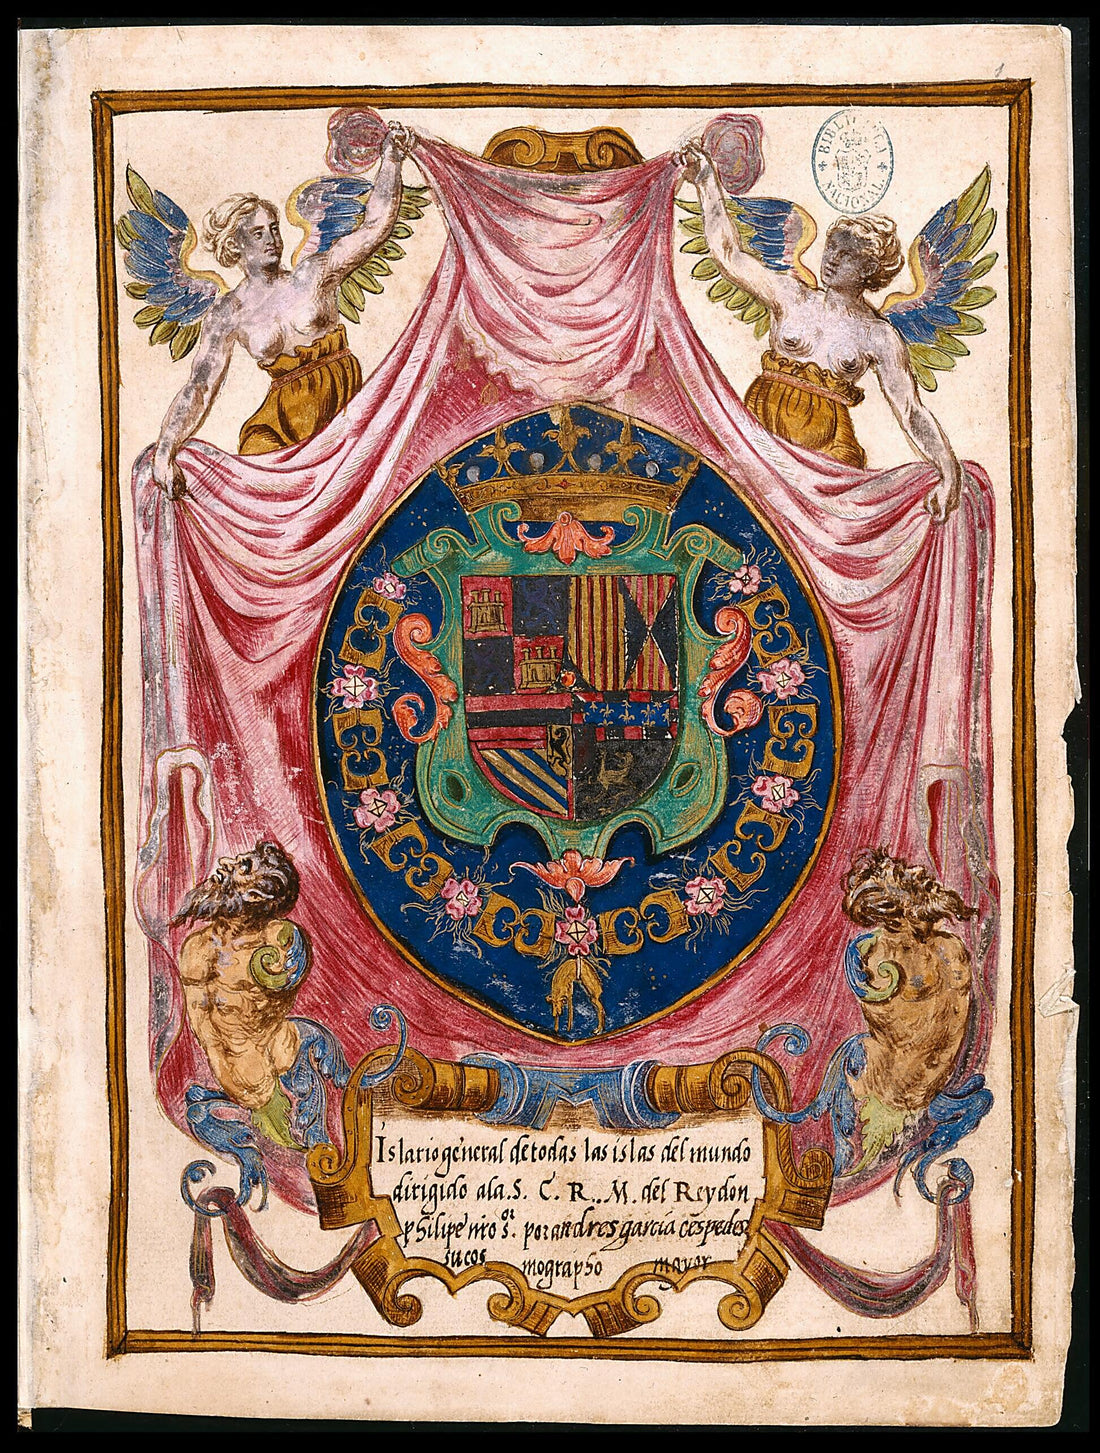 1
BIBLIOTECA
NACIONAL.
Islario general de todas las islas del mundo
dirigido ala .S. C. R.. M. del Rey don
phSilipe nro s.or por andres garcia cespedes
su cos mographo mayor